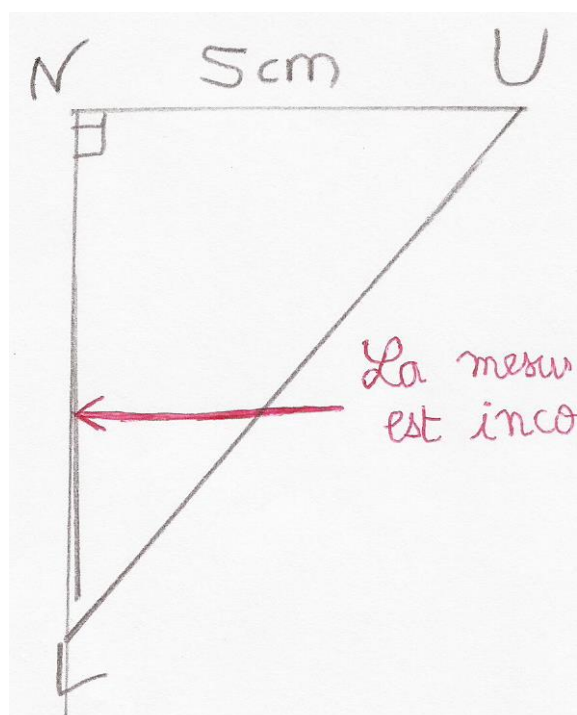 N 5cm U
La mesu
est inco
L